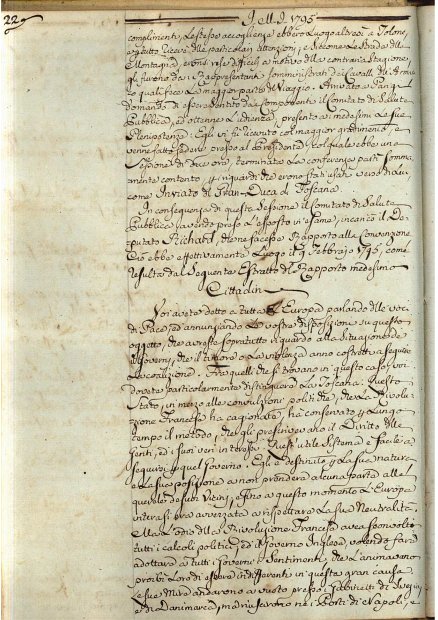 22
I. M. I. 1795
complimenti. Le stesse accoglienze ebbero Luogo altresì a Tolone,
e tutto riceve delle particolari attenzioni, e siccome Le Strade delle
Montagne, erano rese difficili a motivo della contraria Stagione,
gli furono dai Rappresentanti somministrati dei Cavalli dell'Armata
co quali fece La maggior parte del Viaggio. Arrivato a Parigi
domandò di essere sentito dai Componenti il Comitato di Salute
Pubblica, ed ottenne L'Udienza, presentò a medesimi Le sue
Plenipotenze: Egli vi fù ricevuto col maggior gradimento, e
venne fatto sedere presso al Presidente, col quale ebbe una
Sessione di due ore, terminata La conferenza partì somma-
mente contento, per i riguardi che erono stati usati verso di Lui
come Inviato del Gran-Duca di Toscana.
In conseguenza di questa Sessione il Comitato di Salute
Pubblica avendo preso L'esposto in esame, incaricò il De-
putato Richard, che ne facesse Rapporto alla Convenzione
Ciò ebbe effettivamente Luogo il 9 Febbrajo 1795, come
resulta dal Seguente Estratto del Rapporto medesimo
Cittadini
Voi avete detto a tutta L'Europa parlando delle voci
di Pace, ed annunziando Le vostre disposizioni su questo
oggetto, che avreste sopratutto riguardo alla Situazione de'
Governi, che il timore o La violenza anno costretti a seguire
La coalizione. Fra quelli che si trovano in questo caso voi
dovete particolarmente distinguere La Toscana. Questo
Stato, in mezzo alle convulzioni politiche, che La Rivolu-
zione Francese ha cagionate, ha conservato per Lungo
tempo il metodo, che gli prescrivevano il Diritto delle
Genti, ed i suoi veri interessi. Quest'utile Sistema è facile a
seguirsi per quel Governo. Egli è destinato per La sua natura
e La sua posizione a non prendere alcuna parte alle
querele de suoi Vicini, e fino a questo momento L'Europa
intera si era avvezzata a rispettare La sua Neutralità.
Ma L'odio della Rivoluzione Francese avea sconvolto
tutti i calcoli politici, ed il Governo Inglese, volendo fare
adottare a tutti i Governi i Sentimenti, che L'animavano
proibì Loro di essere indifferenti in questa gran causa.
Le sue Mire andarono a vuoto presso i Gabinetti di Svezia
e di Danimarca, ma riuscirono ne i Porti di Napoli, e